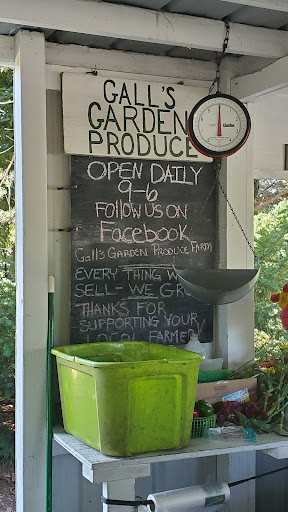 GALL'S
GARDEN
PRODUCE
OPEN DAILY
9-6
FOLLOW US ON
FACEBOOK
GALL'S GARDEN PRODUCE FARM
EVERY THING WE
SELL - WE GROW
THANKS FOR
SUPPORTING YOUR
LOCAL FARMER